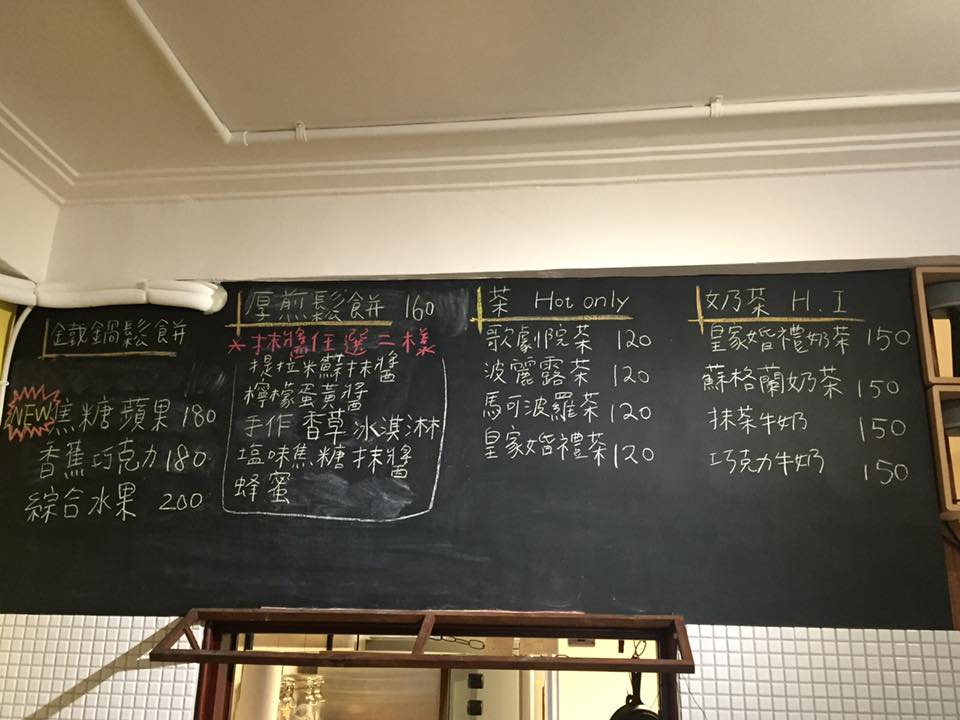 鐵鍋鬆餅
NEW 焦糖蘋果 180
香蕉巧克力 180
綜合水果 200
厚煎鬆餅 160
*抹醬任選二樣
提拉米蘇抹醬
檸檬蛋黃醬
手作香草冰淇淋
塩味焦糖抹醬
蜂蜜
茶 Hot only
歌劇院茶 120
波麗露茶 120
馬可波羅茶 120
皇家婚禮茶 120
奶茶 H.I
皇家婚禮奶茶 150
蘇格蘭奶茶 150
抹茶牛奶 150
巧克力牛奶 150